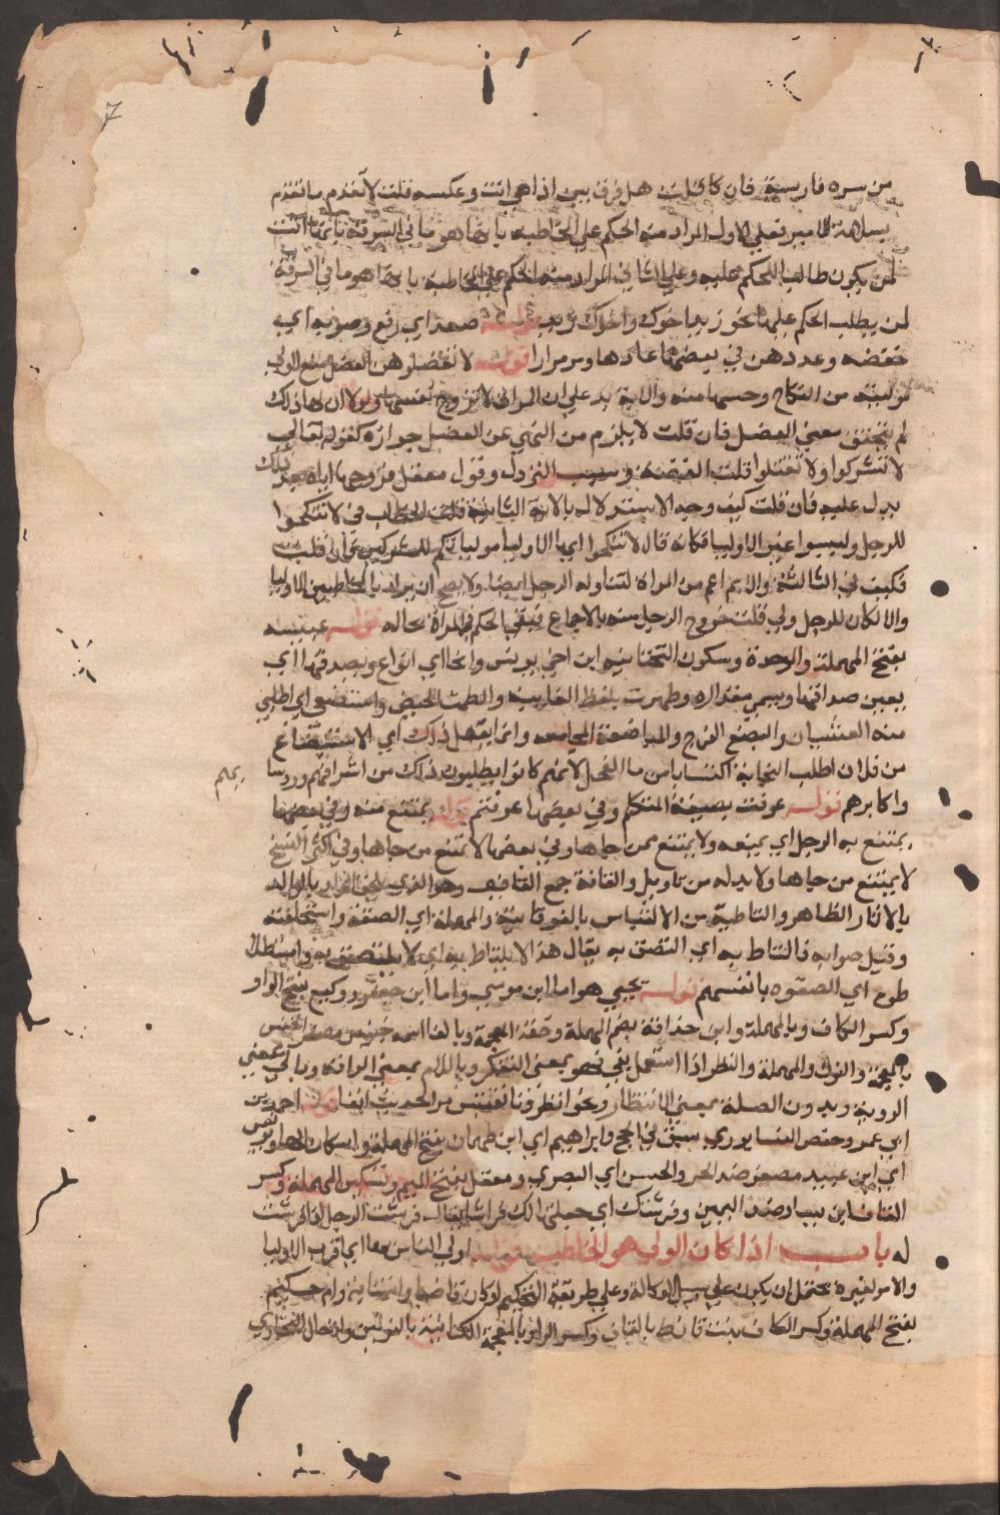 من سره فارسية فان قلت هل فرق بين اذا هي انت وعكسه قلت لا تقدم ما تقدم
فعلي الاول المراد منه الحكم علي المخاطبه بانها هو ما في السرقة بانها انت
لمن يكون طالب الحكم عليه وعلي الثاني المراد منه الحكم علي المخاطبه بانها هو ما في السرقة
لمن يطلب الحكم عليها نحو زيد اخوك واخوك زيد قوله صعد اي رفع وصوبه اي
خفضه وعددهن في بعضها عادها ومر مرارا قوله لا تعضلوهن العضل منع الولي
موليته من النكاح وحبسها منه والاية يدل علي ان المراة لا تزوج نفسها ولولا ان لها ذلك
لم يتحقق معني العضل فان قلت لا يلزم من النهي عن العضل جوازه كقوله تعالي
لا تشركوا ولا تقتلوا قلت القصة وسبب النزول وقول معقل فزوجها اياه بعد ذلك
يدل عليه فان قلت كيف وجه الاستدلال بالاية الثانية قلت الخطاب في لا تنكحوا
للرجل وليسوا غير الاوليا فكانه قال لا تنكحوا ايها الاوليا مولياتكم للمشركين فان قلت
فكيف في الثالثة والايم اعم من المراة لتناوله الرجل ايضا ولا يصح ان يراد بالمخاطبين الاوليا
والا لكان للرجل ولي قلت خروج الرجل منه بالاجماع فبقي الحكم في المراة بحاله قوله عنبسه
بفتح المهملة والوحدة وسكون النحتانيه ابن اخي يونس وانحا اي انواع ويصدقها اي
يعين صداقها ويسمي مقداره وطهرت بلفظ الغايبه والطمث الحيض واستبضعي اي اطلبي
منه الغشيان والبضع الفرج والمباضعة المجامعه وانما يفعل ذلك اي الاستبضاع
من فلان اطلب النجابة اكتسابا من ما الفحل لانهم كانوا يطلبون ذلك من اشرافهم وروسا يهم
واكابرهم قوله عرفت بصيغة المتكلم وفي بعضها عرفتم قوله يمتنع منه وفي بعضها
يمتنع به الرجل اي يمنعه ولا يمتنع ممن جاها وفي بعضها لا تمنع من جاها وفي اكثر النسخ
لا يمتنع من جاها ولا بد له من تاويل والقافة جمع القايف وهو الذي يلحق الولد بالوالد
بالاثار الظاهر والتاطية من الالتياس بالفوقانية والمهملة اي الصقته واستلحقته
وقيل صوابه فالتاط به اي التصق به يقال هذا الا يلتاط به اي لا يلتصق به
اي الصقوه بانفسهم قوله يحيي هو اما ابن موسي واما ابن جعفر ووكيع بفتح الواو
وكسر الكاف وبالمهملة وابن حذافة بضم المهملة وخفة المعجمة وبالفا اسمه خنيس مصغر الخنس
بالمعجمة والنون والمهملة والنظر اذا استعمل بفي فهو بمعني التفكر وباللام بمعني الرافة وبالي بمعني
الروية وبدون الصلة بمعني الانتظار ونحو انظرونا نقتبس مر الحديث انفا قوله احمد بن
ابي عمر وحفص النيسابوري سبق في الحج وابراهيم اي ابن طهمان بفتح المهملة واسكان الها ويونس
اي ابن عبيد مصغر ضد الحر والحسن اي البصري ومعقل بفتح الميم وتسكين المهملة وكسر
القاف ابن يسار ضد اليمين وفرشتك اي جعلتها لك فراشا يقال فرشت الرجل اذا فرشت
له باب اذا كان الولي هو الخاطب قوله اولي الناس بها اي اقرب الاوليا
والامر لغيره يحتمل ان يكون علي سبيل الوكالة وعلي طريقة التحكيم او كان قاضيا وام حكيم
بفتح المهملة وكسر الكاف بنت قارظ بالقاف وكسر الرا وبالمعجمة الكنانية